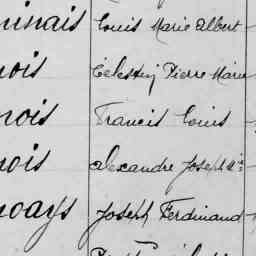 inais Louis Marie Albert
nois Célestin Pierre Marie
nois Francis Louis
nois Alexandre Joseph Mie
noays Joseph Ferdinand